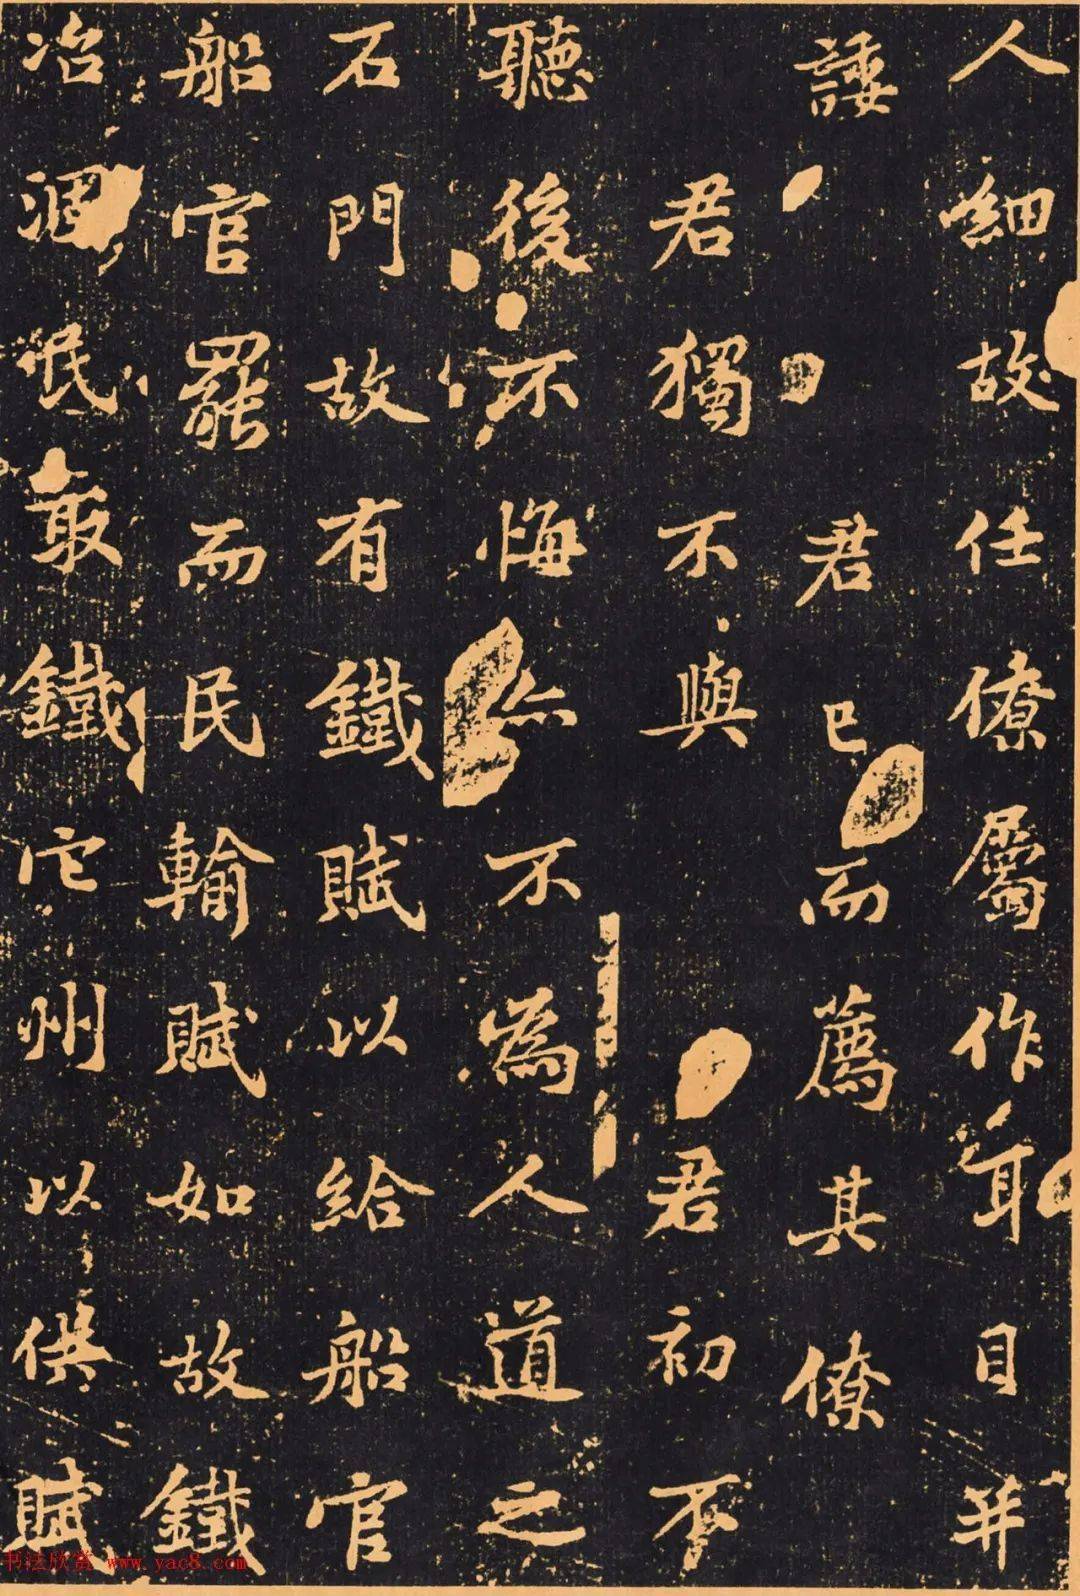 人細故任僚屬作耳目并
諉君已而薦其僚
君獨不與君初不
聽後不悔亦不為人道之
石門故有鐵賦以給船官
船官罷而民輸賦如故鐵
冶涸民取鐵它州以供賦
书法欣赏 www.yac8.com